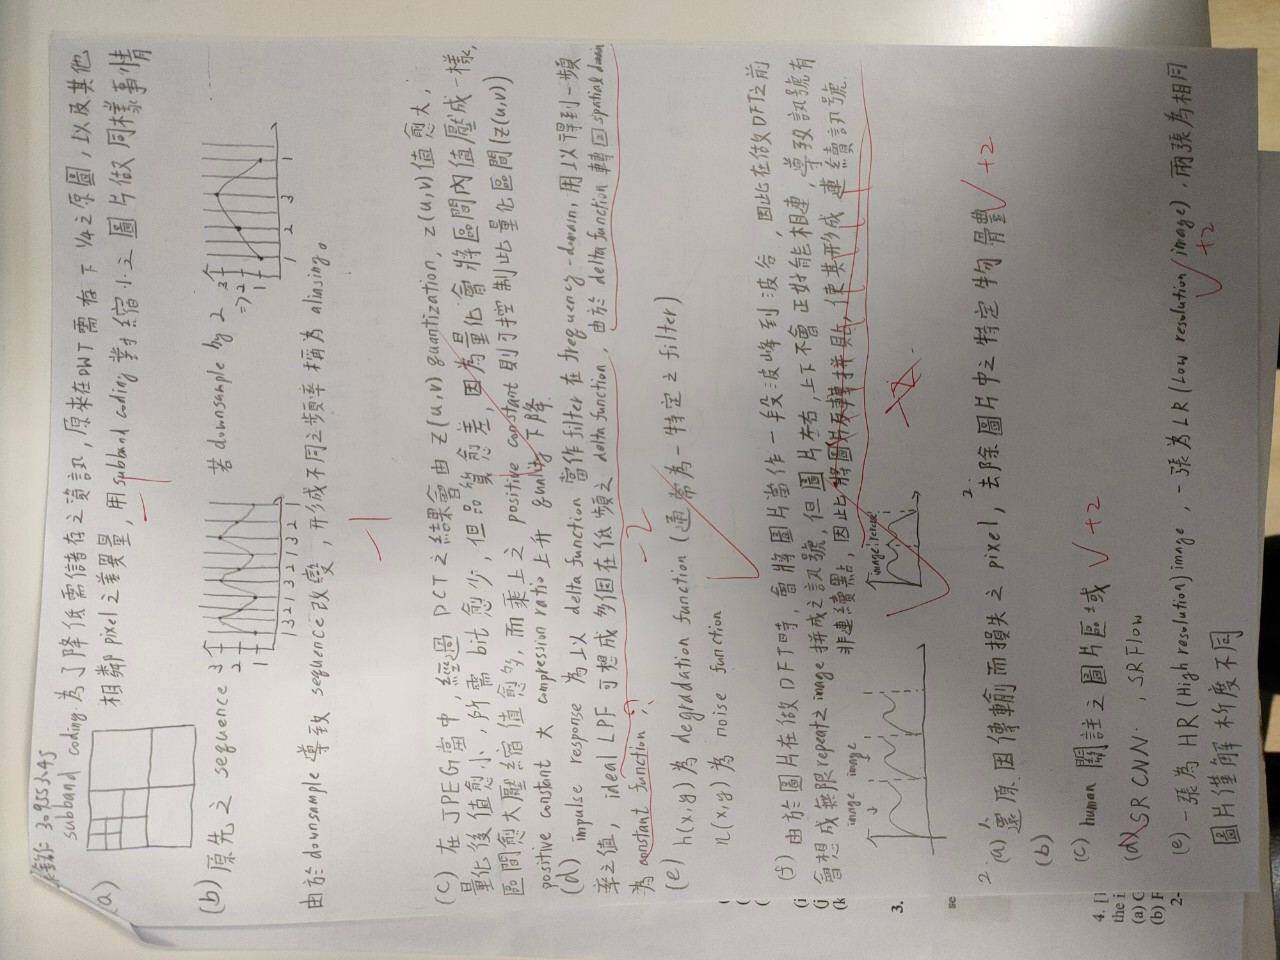 30955345
subband coding 為了降低需儲存之資訊，原來在DWT需存下 1/4之原圖，以及其他
(a)
相鄰 pixel 之差異量，用 subband coding 對縮小之圖片做同樣事情
-1
(b) 原先之 sequence
3
2
1
1 3 2 1 3 2 1 3 2 1
若 downsample by 2
=>
3
2
1
1 2 3 1
由於 downsample 導致 sequence 改變，形成不同之頻率稱為 aliasing。
-1
(c) 在 JPEG 當中，經過 DCT 之結果會由 Z(u,v) quantization, Z(u,v)值愈大，
量化後值愈小，所需 bit 愈少，但品質愈差，因為量化會將區間內值壓成一樣，
區間愈大壓縮值愈多，而乘上之 positive constant 則可控制此量化區間(Z(u,v))
positive constant 大 compression ratio 上升 quality 下降
(d) impulse response 為以 delta function 當作 filter 在 frequency-domain, 用以得到一頻
率之值，ideal LPF 可想成多個在低頻之 delta function，由於 delta function 轉回 spatial domain
為 constant function , ?
-2
(e) h(x,y) 為 degradation function (通常為一特定之 filter)
n(x,y) 為 noise function
(f) 由於圖片在做 DFT 時，會將圖片當作一段波峰到波谷，因此在做DFT之前
會想成無限 repeat 之 image 拼成之訊號，但圖片左右，上下不會正好能相連，導致訊號有
非連續點，因此將圖片反轉拼貼，使其形成連續訊號.
image image
image reverse
2.
(a) 1. 還原因傳輸而損失之 pixel， 2. 去除圖片中之特定物體 +2
(b)
(c) human 關註之圖片區域 +2
(d) SRCNN. , SRFlow
(e) 一張為 HR (High resolution) image , 一張為 LR (Low resolution image) . 兩張為相同
+2
圖片僅解析度不同
(i
(j
(k
3.
se
4. [1
the i
(a) G
(b) F
2-